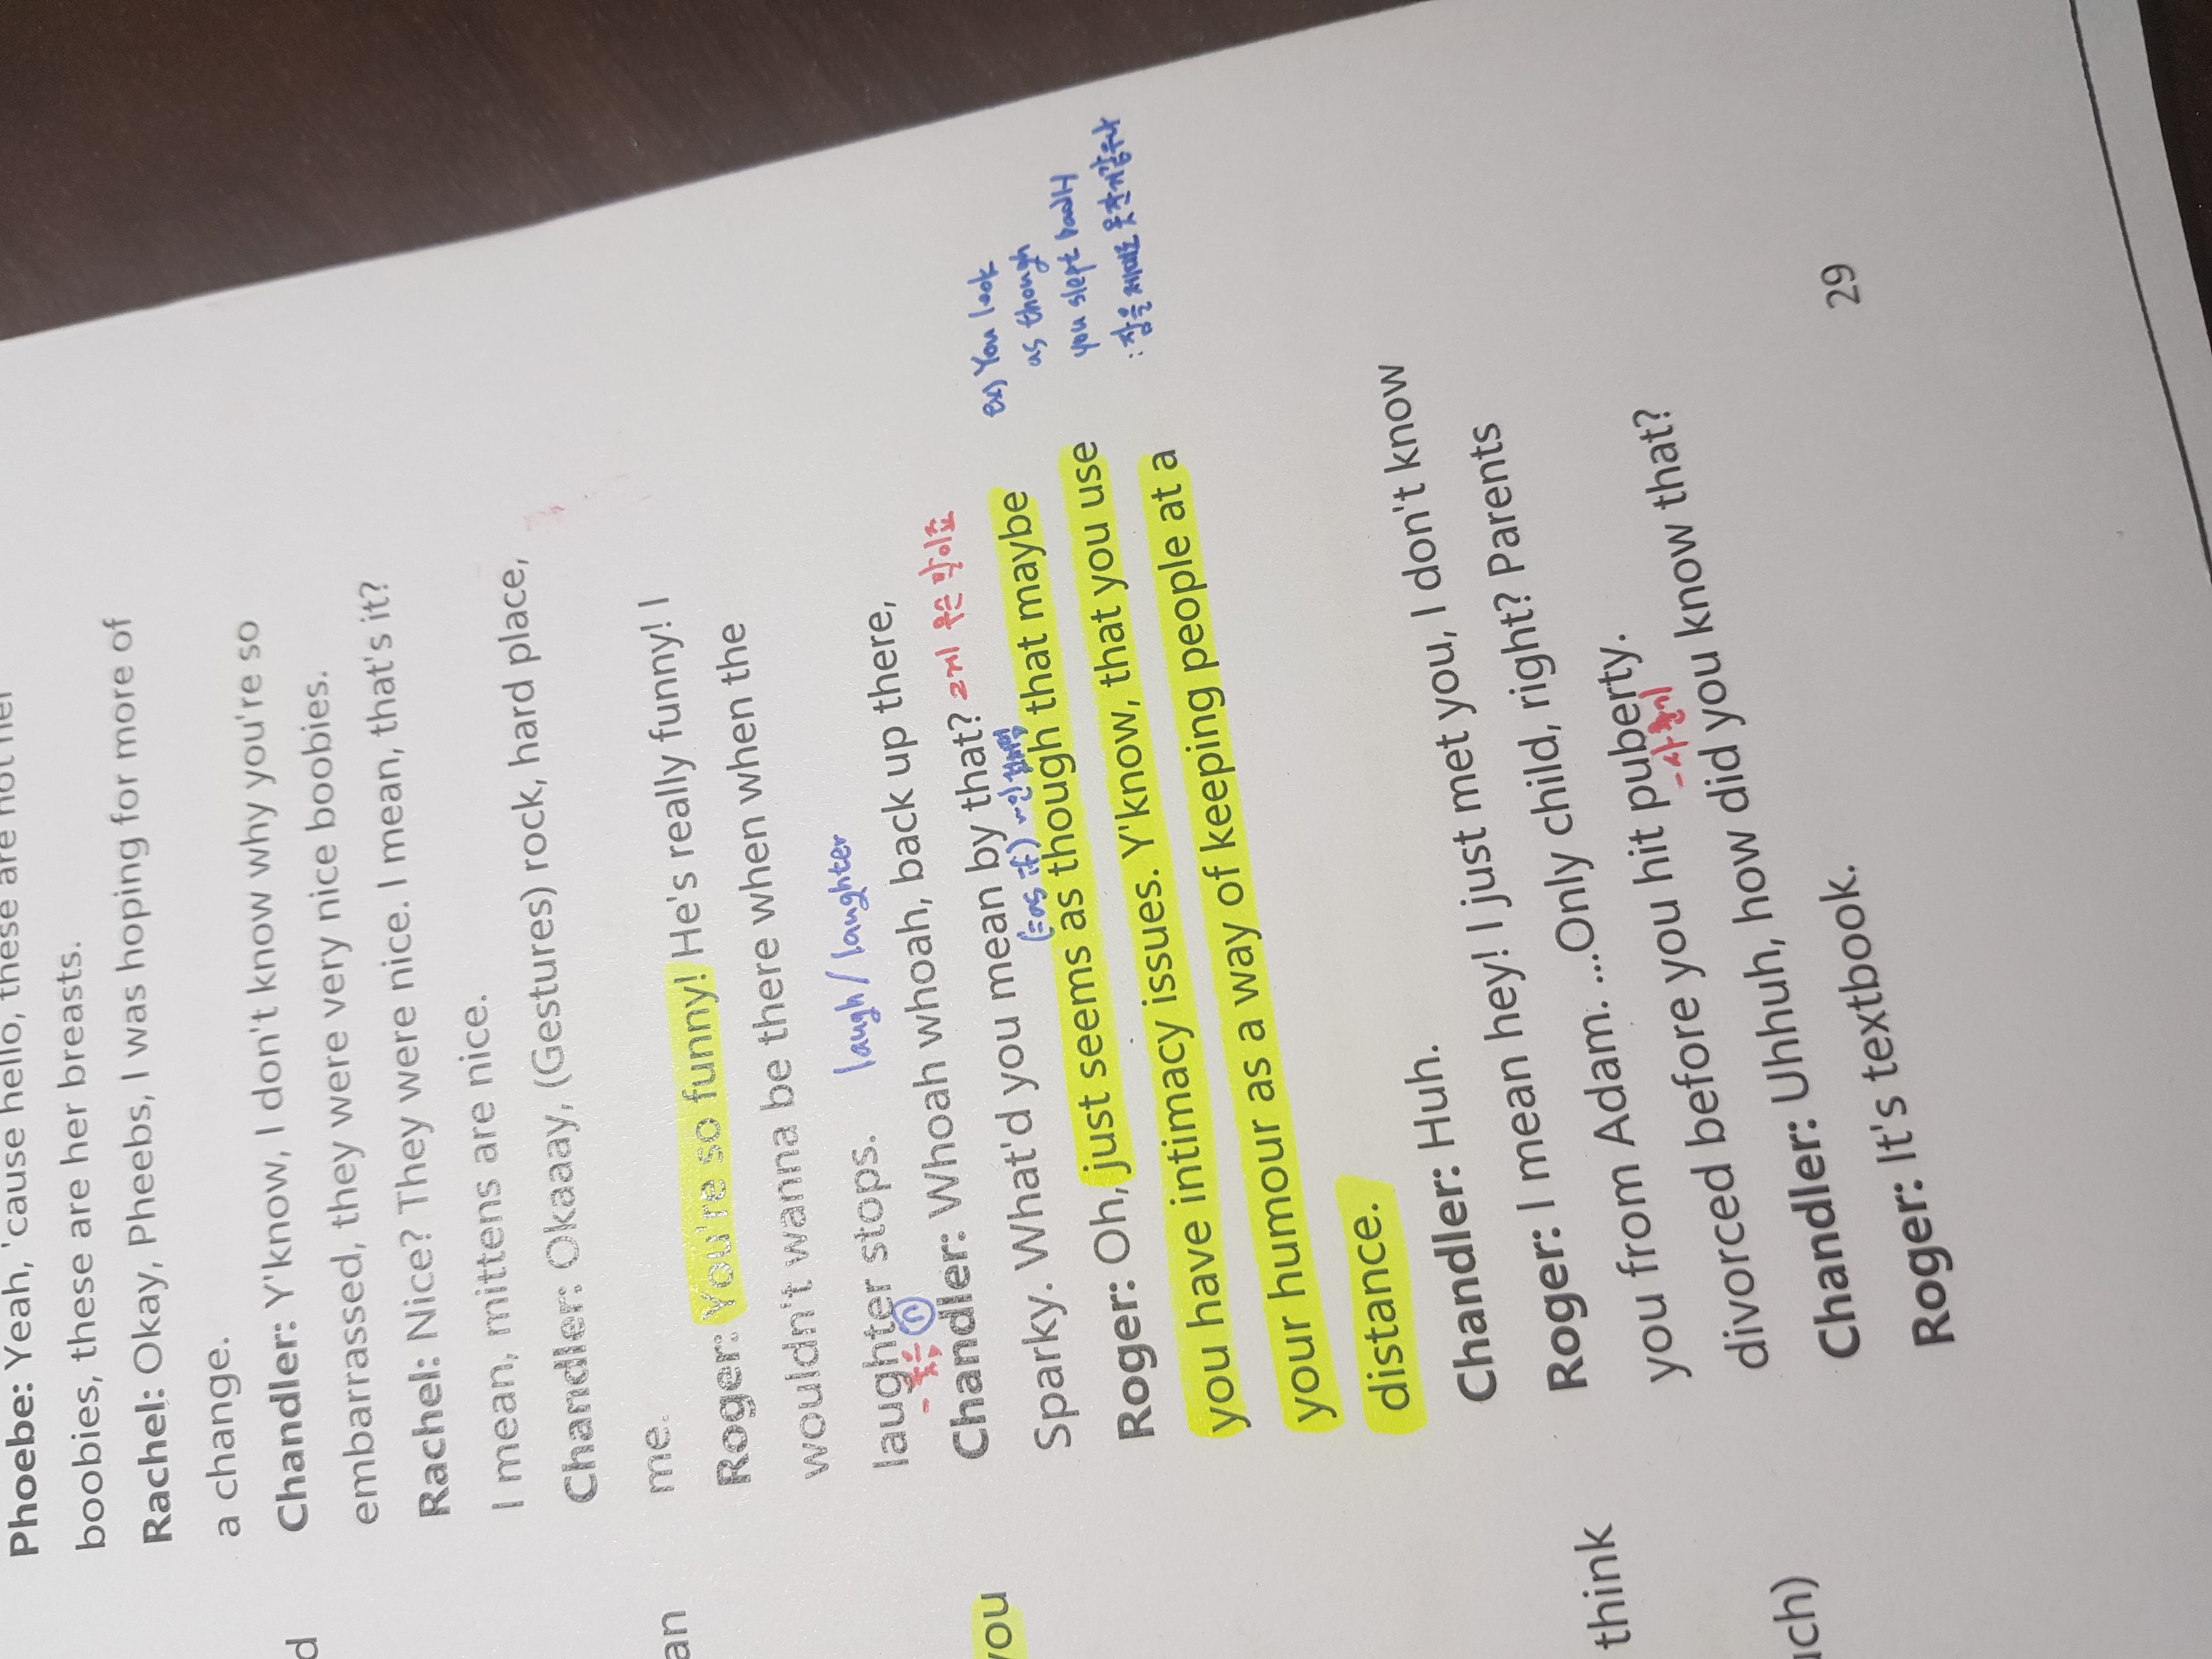 Phoebe: Yeah, 'cause hello, these are not her
boobies, these are her breasts.
Rachel: Okay, Pheebs, I was hoping for more of
a change.
Chandler: Y'know, I don't know why you're so
embarrassed, they were very nice boobies.
Rachel: Nice? They were nice. I mean, that's it?
I mean, mittens are nice.
Chandler: Okaaay, (Gestures) rock, hard place,
me.
Roger: You're so funny! He's really funny! I
wouldn't wanna be there when when the
laugh / laughter
laughter stops.
- 웃음 n
Chandler: Whoah whoah, back up there,
Sparky. What'd you mean by that? 그게 무슨 말이죠
(=as if) ~인 것처럼
Roger: Oh, just seems as though that maybe
you have intimacy issues. Y'know, that you use
your humour as a way of keeping people at a
distance.
ex) You look
as though
you slept badly
: 잠을 제대로 못잔거같구나
Chandler: Huh.
Roger: I mean hey! I just met you, I don't know
you from Adam. ...Only child, right? Parents
divorced before you hit puberty.
- 사춘기
Chandler: Uhhuh, how did you know that?
Roger: It's textbook.
29
d
an
you
think
uch)